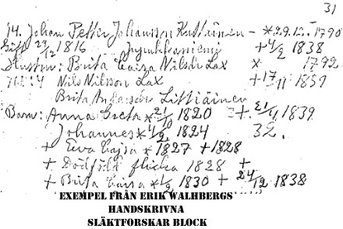 31
14. Johan Petter Johansson Kuttainen - *29.12. 1790
Gift 27/12 1816 Junukkaniemi + 4/2 1838
Hustru: Brita Caisa Nilsdr Lax * 1792
Nils Nilsson Lax + 17/11 1859
Brita Andersdr Littiäinen
Barn: Anna Greta * 1820 + 1839
Johannes * 1824 32.
+ Eva Cajsa * 1827 + 1828
+ Dödfödd flicka 1828 +
+ Brita Caisa * 1830 + 24/12 1838
EXEMPEL FRÅN ERIK WALHBERGS
HANDSKRIVNA
SLÄKTFORSKAR BLOCK